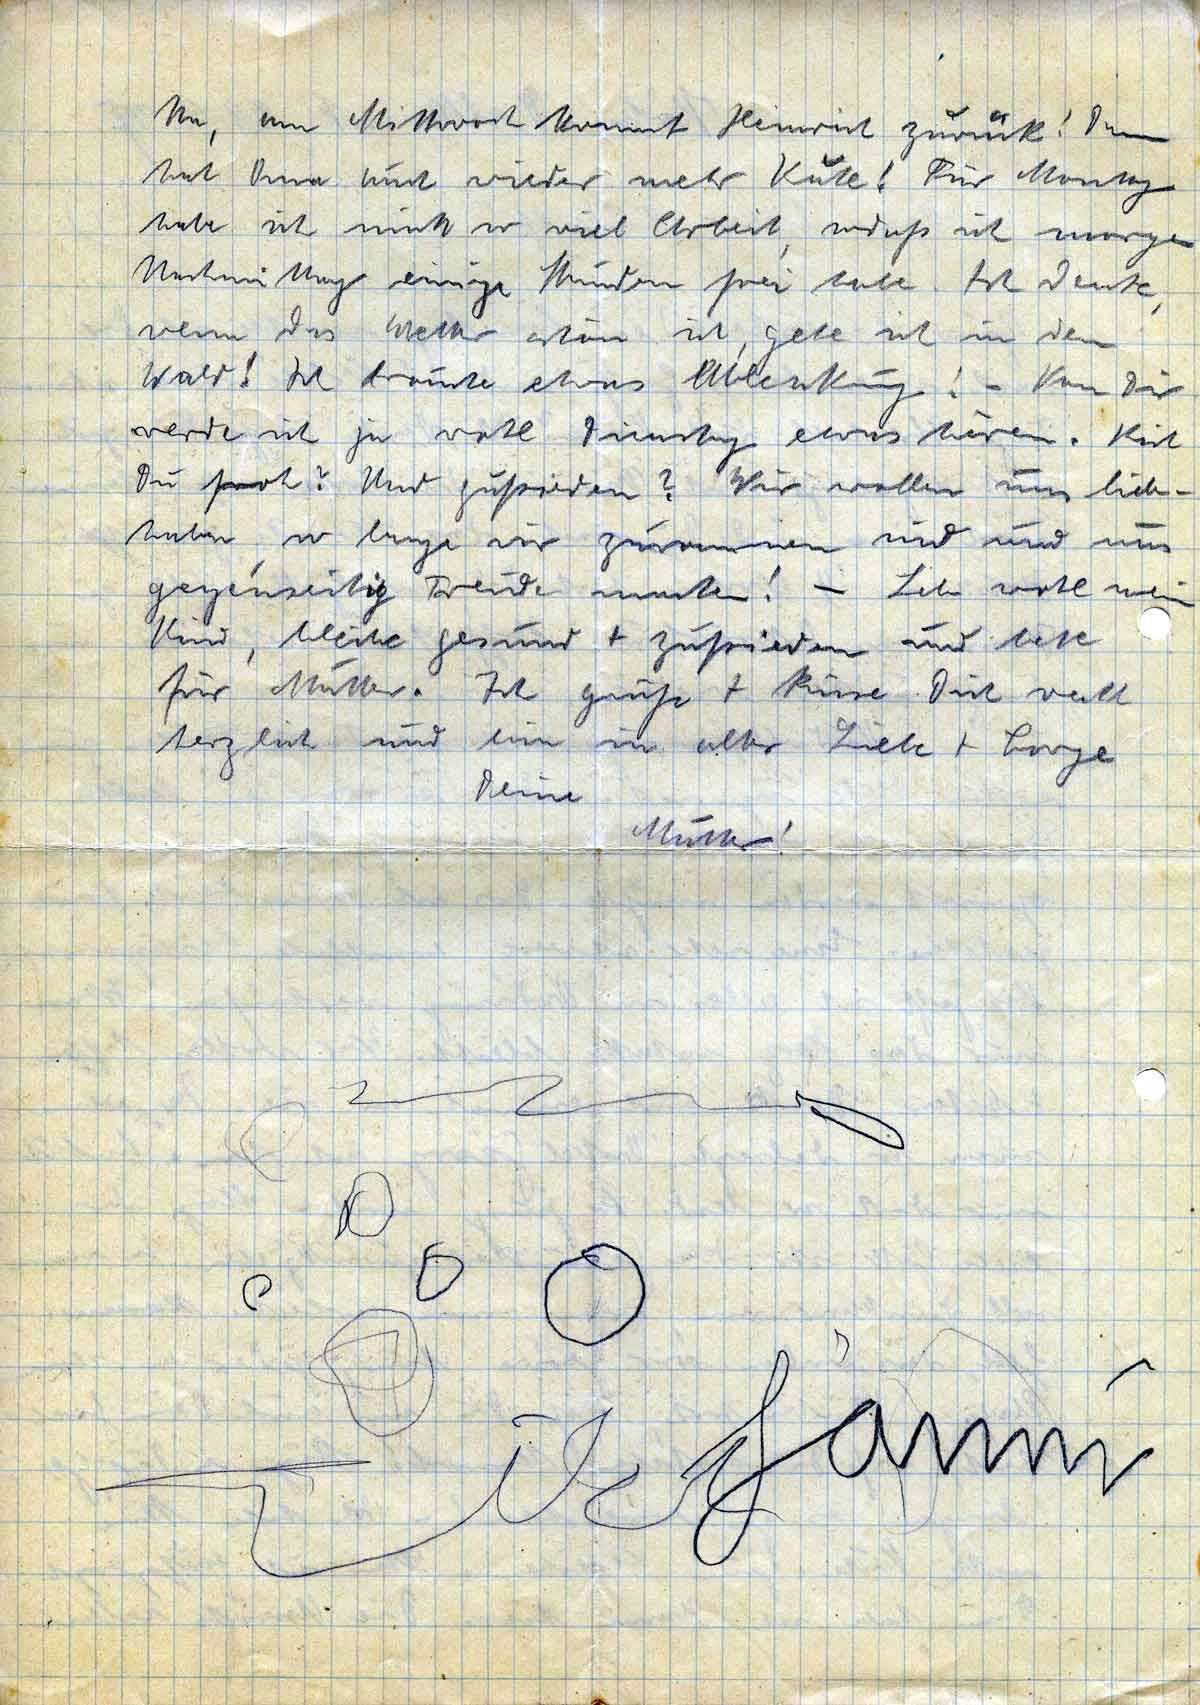 Na, am Mittwoch kommt Heinrich zurück! Dann
hat Oma auch wieder mehr Ruhe! Für Montag
habe ich nicht so viel Arbeit, sodaß ich morgen
Nachmittag einige Stunden frei habe. Ich denke,
wenn das Wetter schön ist, gehe ich in den
Wald! Ich brauche etwas Ablenkung! – Von Dir
werde ich ja wohl Dienstag etwas hören. Bist
Du froh? Und zufrieden? Wir wollen uns lieb-
haben, so lange wir zusammen sind und uns
gegenseitig Freude machen! – Leb wohl mein
Kind, bleibe gesund + zufrieden und bete
für Mutter. Ich grüße + küsse Dich recht
herzlich und bin in alter Liebe + Sorge
Deine
Mutter!